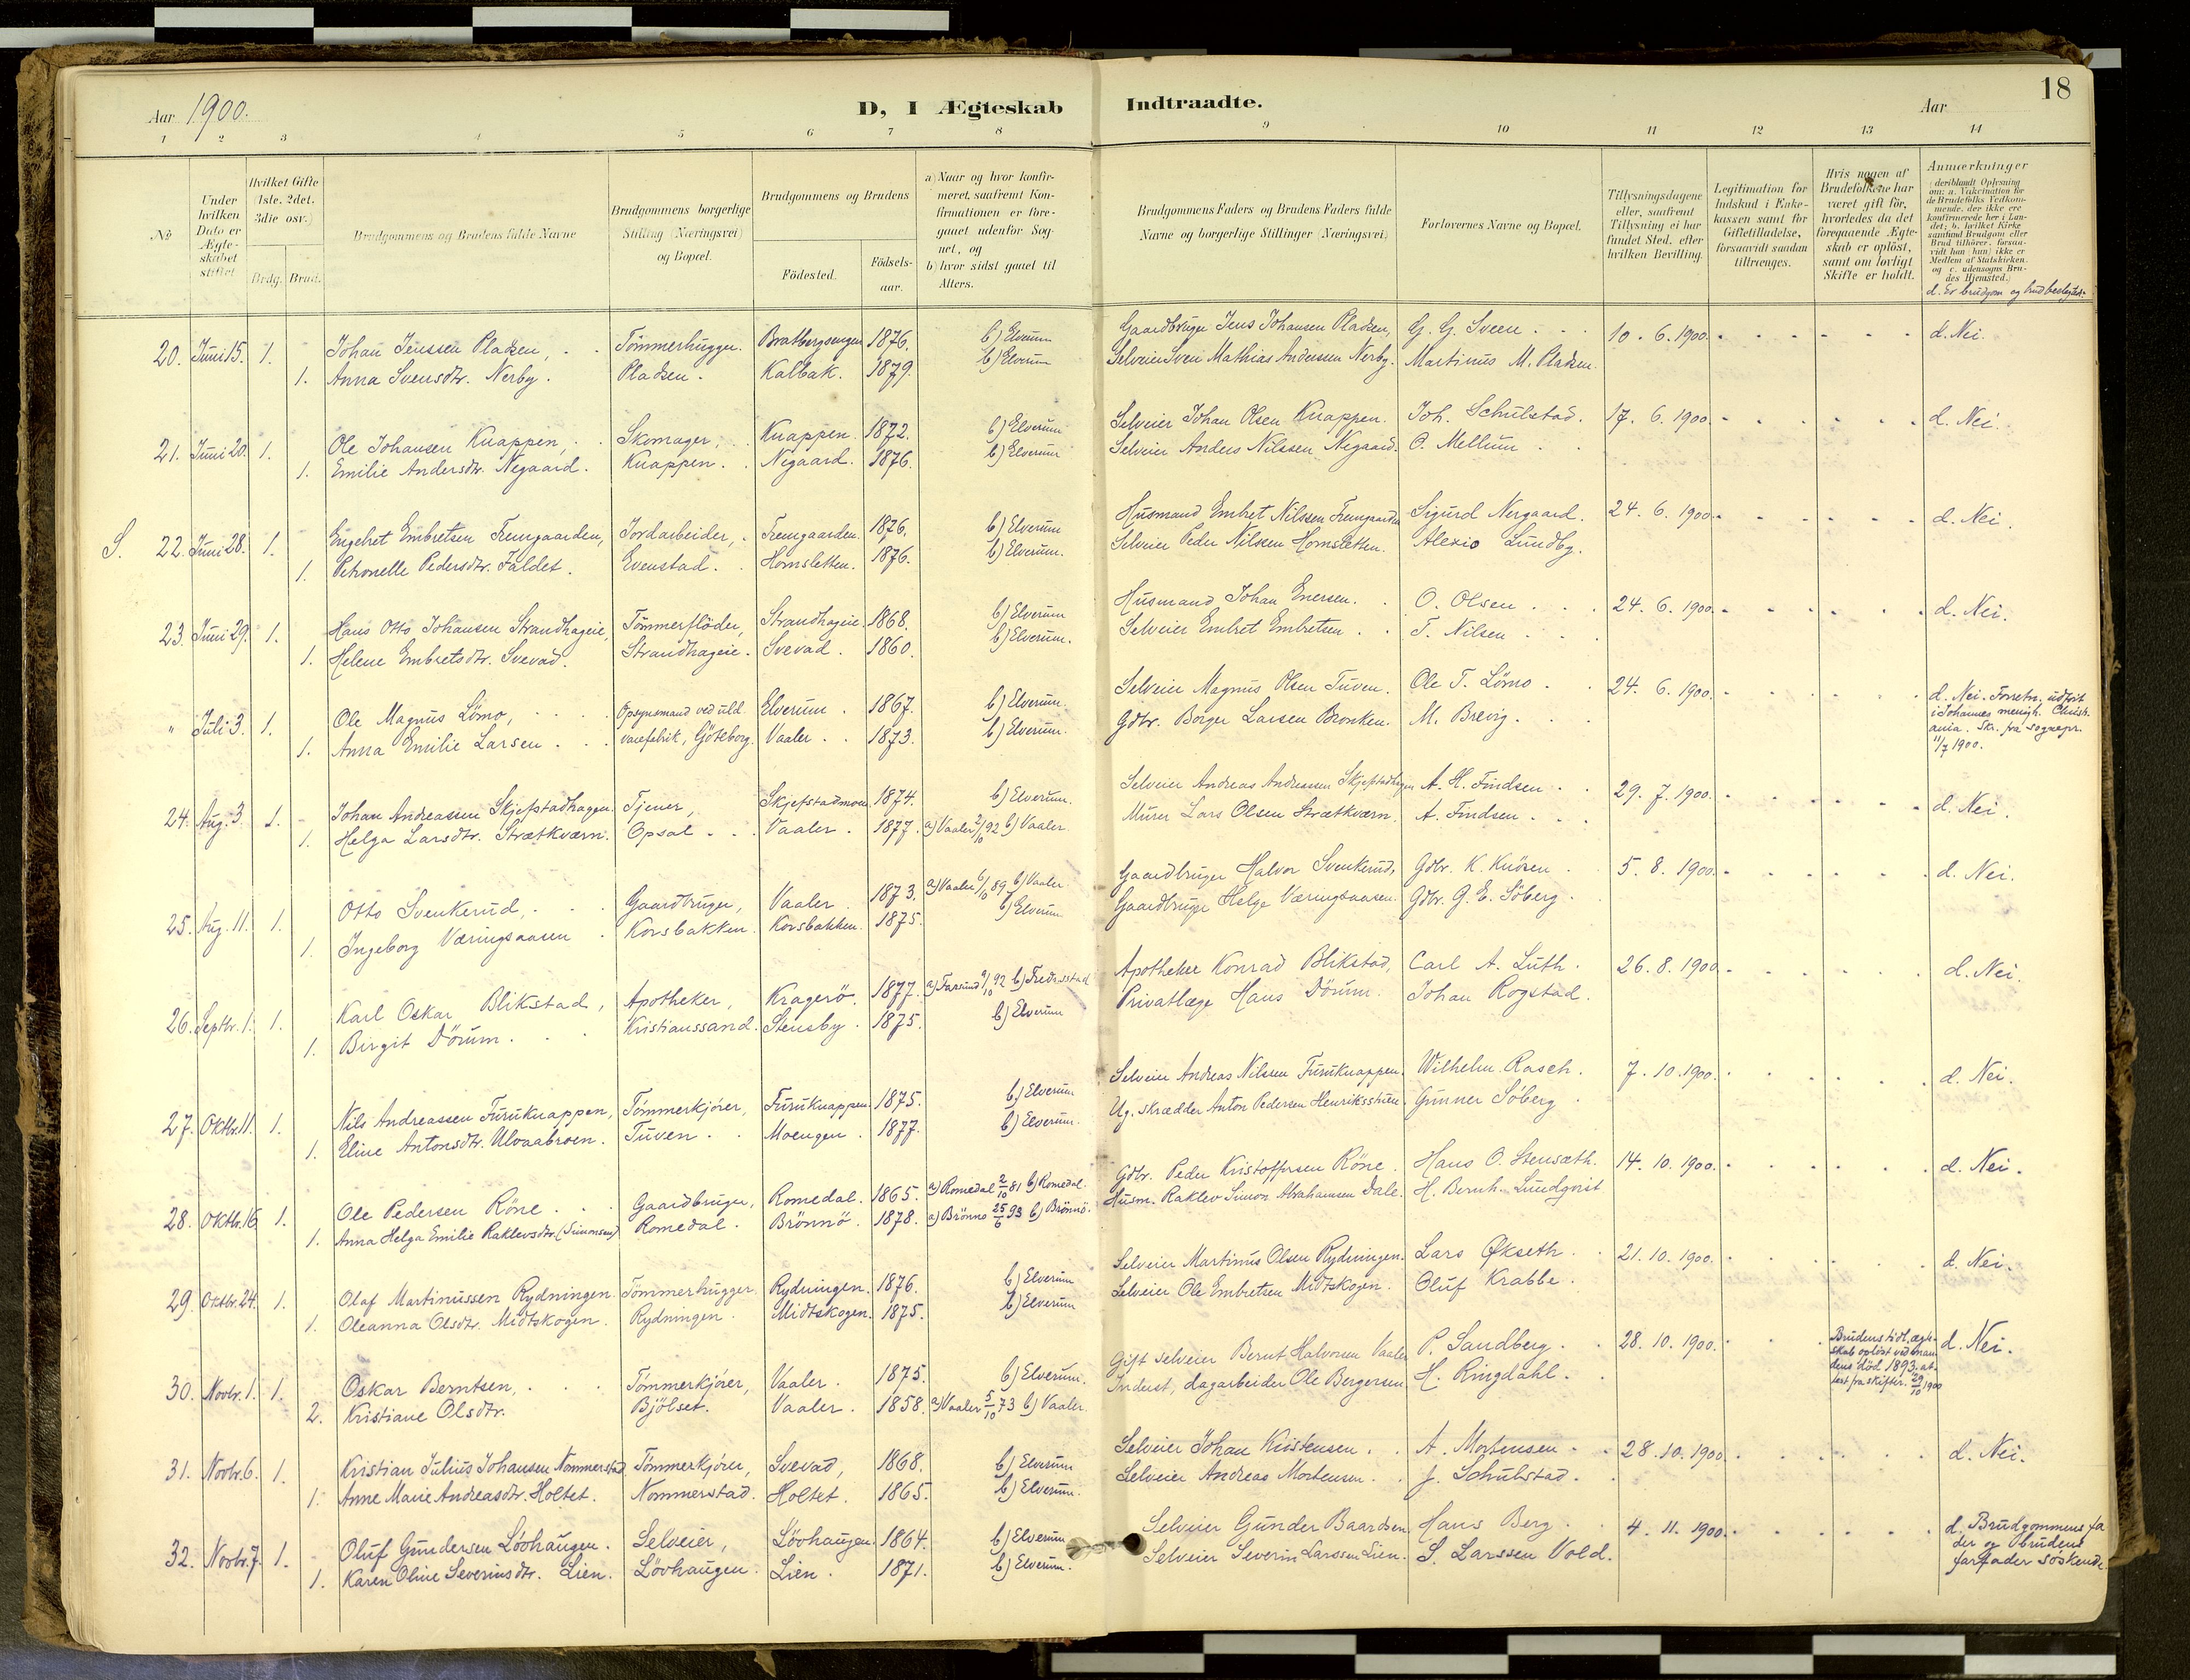 18
Aar 1900.
D, I Ægteskab Indtraadte.
Aar
1 2 3 4 5 6 7 8 9 10 11 12 13 14
No
Under hvilken Dato er Ægteskabet stiftet
Hvilket Gifte (1ste, 2det, 3die osv.)
Brdg. Brud.
Brudgommens og Brudens fulde Navne
Brudgommens borgerlige Stilling (Næringsvei) og Bopæl.
Brudgommens og Brudens
Födested.
Födselsaar.
a) Naar og hvor konfirmeret, saafremt Konfirmationen er foregaaet udenfor Sognet, og
b) hvor sidst gaaet til Alters.
Brudgommens Faders og Brudens Faders fulde Navne og borgerlige Stillinger (Næringsvei)
Forlovernes Navne og Bopæl.
Tillysningsdagene eller, saafremt Tillysning ei har fundet Sted, efter hvilken Bevilling.
Legitimation for Indskud i Enkekassen samt for Giftetilladelse, forsaavidt saadan tiltrænges.
Hvis nogen af Brudefolkene har været gift før, hvorledes da det foregaaende Ægteskab er oplöst, samt om lovligt Skifte er holdt.
Anmærkninger
(deriblandt Oplysning om: a. Vakcination for de Brudefolks Vedkommende, der ikke ere konfirmerede her i Landet; b. hvilket Kirkesamfund Brudgom eller Brud tilhører, forsaavidt han (hun) ikke er Medlem af Statskirken, og c. udensogns Brudes Hjemsted.)
d. Er brudgom og brud beslægtet.
20. Juni 15. 1. Johan Jenssen Pladsen, Tömmerhugger. Bratbergsengen 1876. b) Elverum Gaardbruger Jens Johansen Pladsen, G. G. Sveen 10. 6. 1900. d. Nei.
1. Anna Svensdtr. Nerby. Pladsen. Kalbak. 1879. b) Elverum Selveier Sven Mathias Andersen Nerby. Martinus M. Pladsen.
21. Juni 20. 1. Ole Johansen Knappen, Skomager, Knappen. 1872. b) Elverum Selveier Johan Olsen Knappen. Joh. Schulstad. 17. 6. 1900. d. Nei.
1. Emilie Andersdtr. Negaard. Knappen. Negaard. 1876. b) Elverum Selveier Anders Nilssen Negaard. O. Mellum
S. 22. Juni 28. 1. Engebret Embretsen Fremgaarden, Jordarbeider, Fremgaarden. 1876. b) Elverum Husmand Embret Nilssen Fremgaarden Sigurd Nergaard. 24. 6. 1900. d. Nei.
1. Petronelle Pedersdtr. Faldet. Evenstad. Hornsletten. 1876. b) Elverum. Selveier Peder Nilssen Hornsletten. Alexis Lundby.
23. Juni 29. 1. Hans Otto Johansen Strandhageie, Tömmerflöder, Strandhageie. 1868. b) Elverum Husmand Johan Enersen. O. Olsen 24. 6. 1900. d. Nei.
1. Helene Embretsdtr. Svevad. Strandhageie. Svevad. 1860. b) Elverum. Selveier Embret Embretsen T. Nilsen
" Juli 3. 1. Ole Magnus Lömo, Opsynsmand ved uld- Elverum. 1867. b) Elverum. Selveier Magnus Olsen Tuven. Ole T. Lömo 24. 6. 1900. d. Nei. Forretn. udført i Johannes menigh. Christiania. Skr. fra sognepr. 11/7 1900.
1. Anna Emilie Larsen varefabrik, Göteborg. Vaaler. 1873. b) Elverum. Gdbr. Borger Larsen Bronken. M. Brevig.
24. Aug. 3. 1. Johan Andreassen Skjefstadhagen. Tjener, Skjefstadmoen 1874. b) Elverum. Selveier Andreas Andreassen Skjefstadhagen A. H. Findsen 29. 7. 1900. d. Nei.
1. Helga Larsdtr. Strætkværn. Opsal. Vaaler. 1877. a) Vaaler 2/10 92 b) Vaaler Murer Lars Olsen Strætkværn. A. Findsen
25. Aug. 11. 1. Otto Svenkerud, Gaardbruger, Vaaler. 1873. a) Vaaler 6/10 89 b) Vaaler Gaardbruger Halvor Svenkerud, Gdbr. K. Knösen 5. 8. 1900. d. Nei.
1. Ingeborg Væringsaasen Korsbakken. Korsbakken. 1875. b) Elverum Gaardbruger Helge Væringsaasen. Gdbr. G. E. Söberg.
26. Septbr. 1. 1. Karl Oskar Blikstad, Apotheker, Kragerö. 1877. a) Farsund 9/10 92 b) Fredr.stad Apotheker Konrad Blikstad, Carl A. Luth. 26. 8. 1900. d. Nei.
1. Birgit Dörum. Kristianssand. Stensby. 1875. b) Elverum Privatlæge Hans Dörum. Johan Rogstad.
27. Oktbr. 11. 1. Nils Andreassen Furuknappen, Tömmerkjörer, Furuknappen. 1875. b) Elverum Selveier Andreas Nilssen Furuknappen. Wilhelm Rasch. 7. 10. 1900. d. Nei.
1. Eline Antonsdtr. Ulvaabroen. Tuven. Moengen. 1877. b) Elverum. Ug. skrædder Anton Pedersen Henriksstuen. Gunner Söberg
28. Oktbr. 16. 1. Ole Pedersen Röne. Gaardbruger, Romedal. 1865. a) Romedal 2/10 81 b) Romedal. Gdbr. Peder Kristoffersen Röne. Hans O. Stensæth. 14. 10. 1900. d. Nei.
1. Anna Helga Emilie Raklevsdtr. (Simonsen) Romedal. Brönnö. 1878. a) Brönnö 25/6 93 b) Brönnö. Husm. Raklev Simon Abrahamsen Dale. H. Bernh. Lundqvist
29. Oktbr. 24. 1. Olaf Martinussen Rydningen. Tömmerhugger Rydningen. 1876. b) Elverum Selveier Martinus Olsen Rydningen. Lars Økseth. 21. 10. 1900. d. Nei.
1. Oleanna Olsdtr. Midtskogen. Rydningen. Midtskogen. 1875. b) Elverum Selveier Ole Embretsen Midtskogen. Oluf Krabbe.
30. Novbr. 1. 1. Oskar Berntsen, Tömmerkjörer, Vaaler. 1875. b) Elverum. Gift selveier Bernt Halvorsen Vaaler P. Sandberg. 28. 10. 1900. Brudens tidl. ægteskab oplöst ved mandens död 1893. attest fra skifter. 29/10 1900 d. Nei.
2. Kristiane Olsdtr. Bjölset. Vaaler. 1858. a) Vaaler 5/10 73 b) Vaaler. Inderst, dagarbeider Ole Bergersen H. Ringdahl.
31. Novbr. 6. 1. Kristian Julius Johansen Nommerstad Tömmerkjörer, Svevad, 1868. b) Elverum Selveier Johan Kristensen. A. Mortensen 28. 10. 1900. d. Nei.
1. Anne Marie Andreasdtr. Holtet. Nommerstad. Holtet. 1865. b) Elverum. Selveier Andreas Mortensen. J. Schulstad.
32. Novbr. 7. 1. Oluf Gundersen Lövhaugen. Selveier, Lövhaugen. 1864. b) Elverum Selveier Gunder Baardsen. Hans Berg. 4. 11. 1900. d. Brudgommens fader og brudens farfader söskende
1. Karen Oline Severinsdtr. Lien. Lövhaugen. Lien. 1871. b) Elverum. Selveier Severin Larssen Lien. S. Larssen Vold.